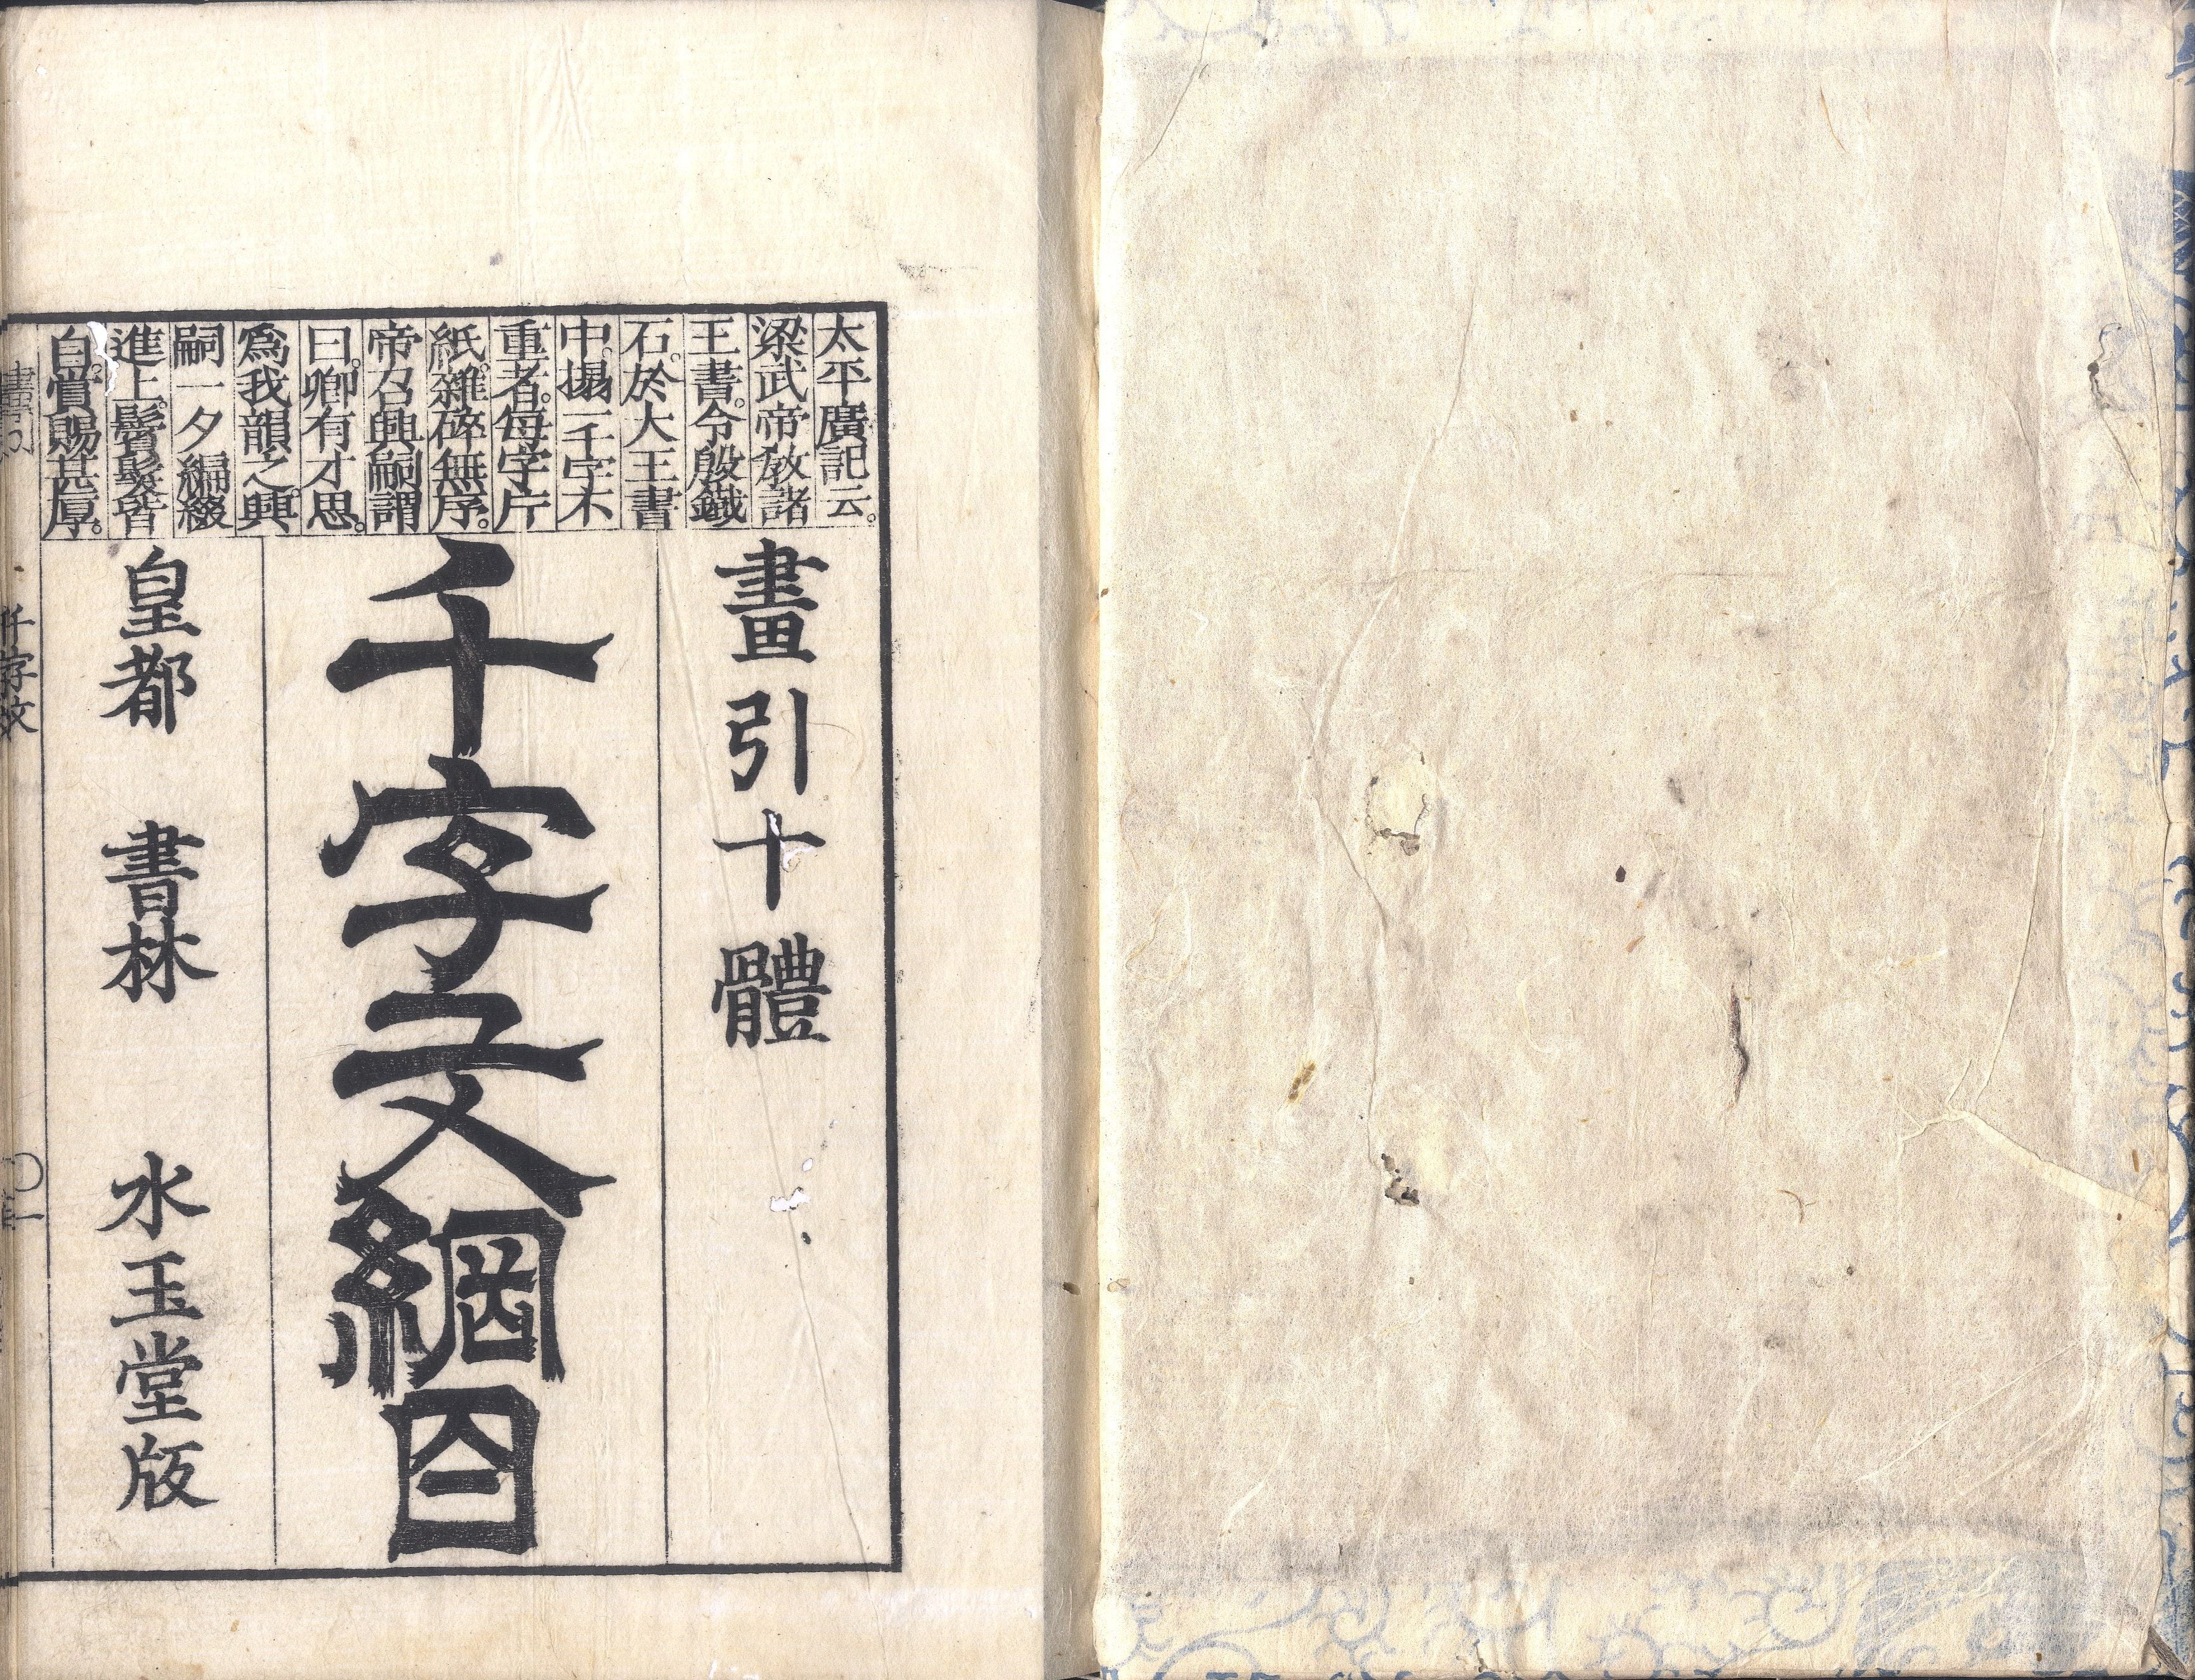 太平廣記云。
梁武帝敎諸
王書。令殷鐵
石。於大王書
中。搨一千字不
重者。每字片
紙。雜碎無序。
帝召興嗣謂
曰。卿有才思。
爲我韻之。興
嗣一夕編綴
進上。鬢髮皆
白。賞賜甚厚。
畫引十體
千字文綱目
皇都 書林 水玉堂版
千字文